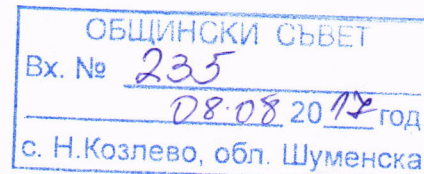 ОБЩИНСКИ СЪВЕТ
Вх. № 235
08.08 2017 год
с. Н.Козлево, обл. Шуменска